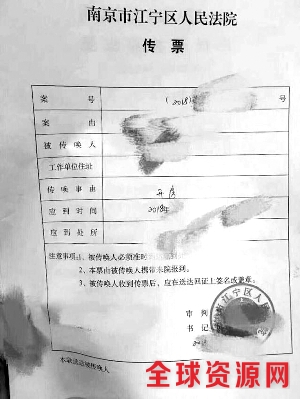 南京市江宁区人民法院
传票
案号 (2018) 号
案由
被传唤人
工作单位住址
传唤事由 开庭
应到时间 2018年
应到处所
注意事项:1、被传唤人必须准时
2、本票由被传唤人携带来院报到。
3、被传唤人收到传票后,应在送达回证上签名或盖章。
审判
书记
本联送达被传唤人
全球资源网